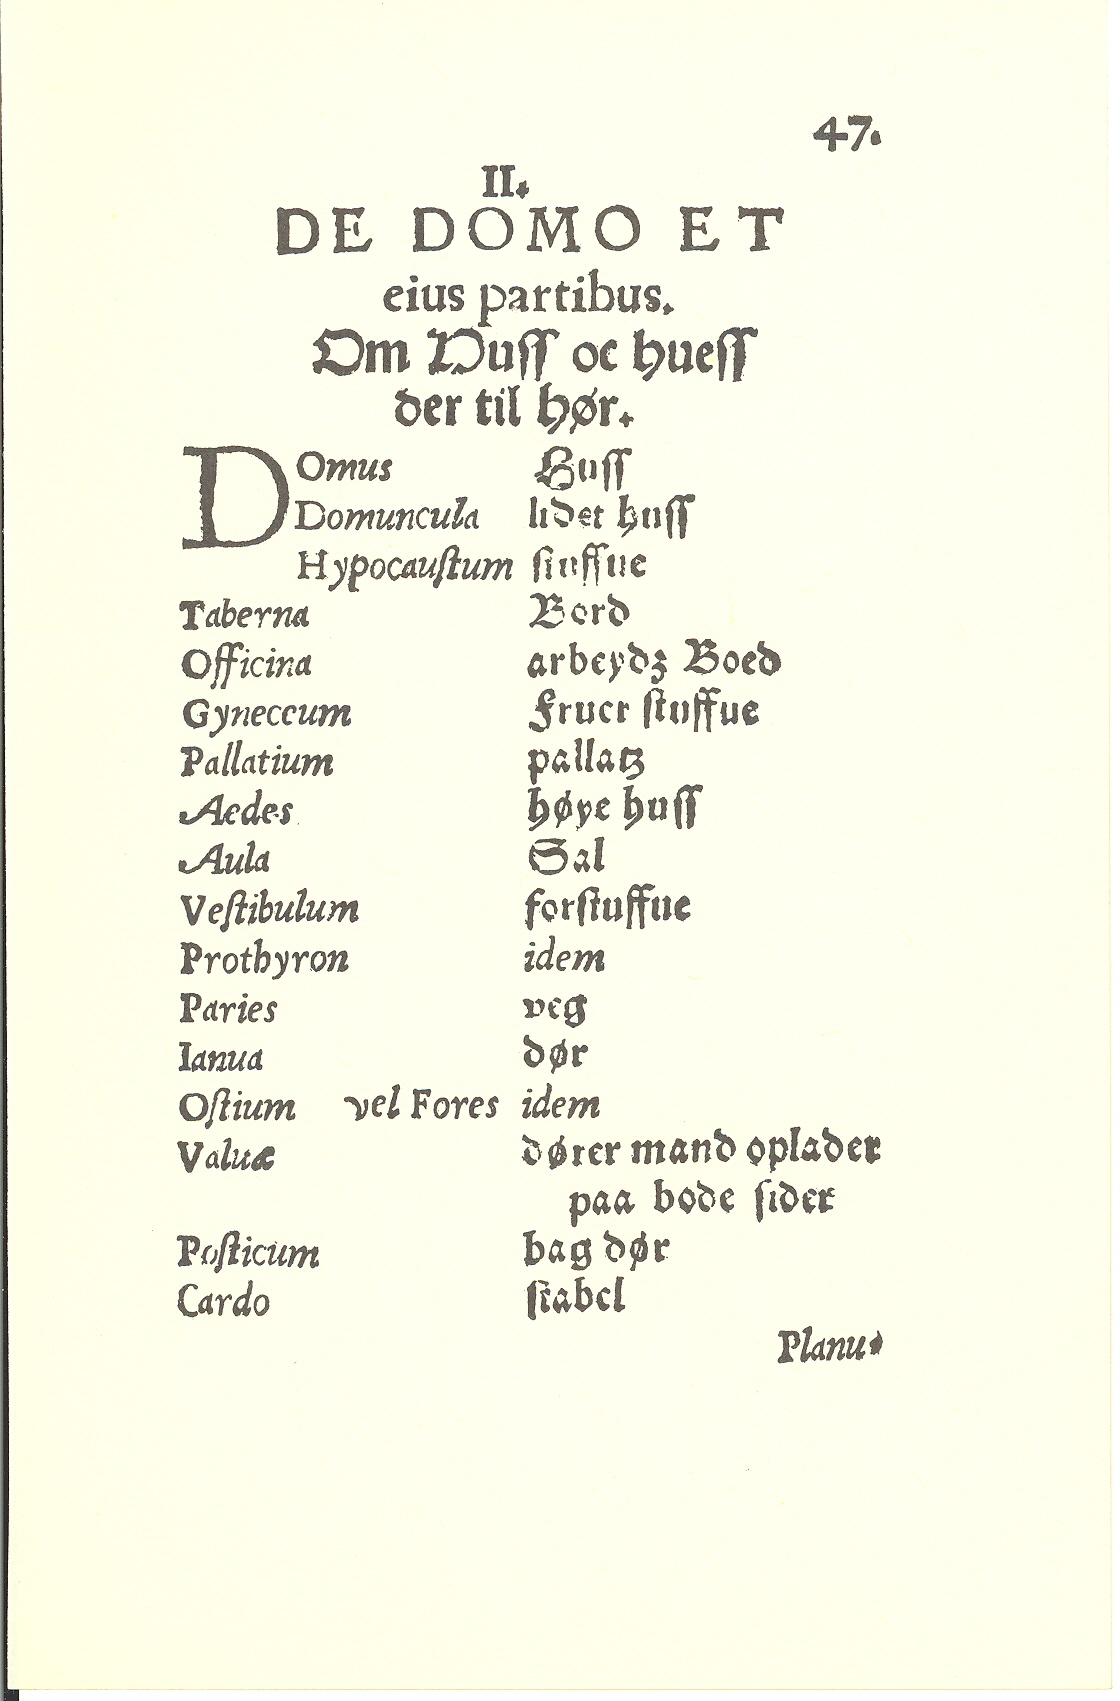 47.
II.
DE DOMO ET
eius partibus.
Om Huſſ oc hueſſ
der til hør.
DOmus Huſſ
Domuncula lidet huſſ
Hypocauſtum ſtuffue
Taberna Bord
Officina arbeydz Boed
Gyneceum Fruer ſtuffue
Pallatium pallatz
Aedes høye huſſ
Aula Sal
Veſtibulum forſtuffue
Prothyron idem
Paries veg
Ianua dør
Oſtium vel Fores idem
Valuæ dører mand oplader
paa bode ſider
Poſticum bag dør
Cardo ſtabel
Planu⸗